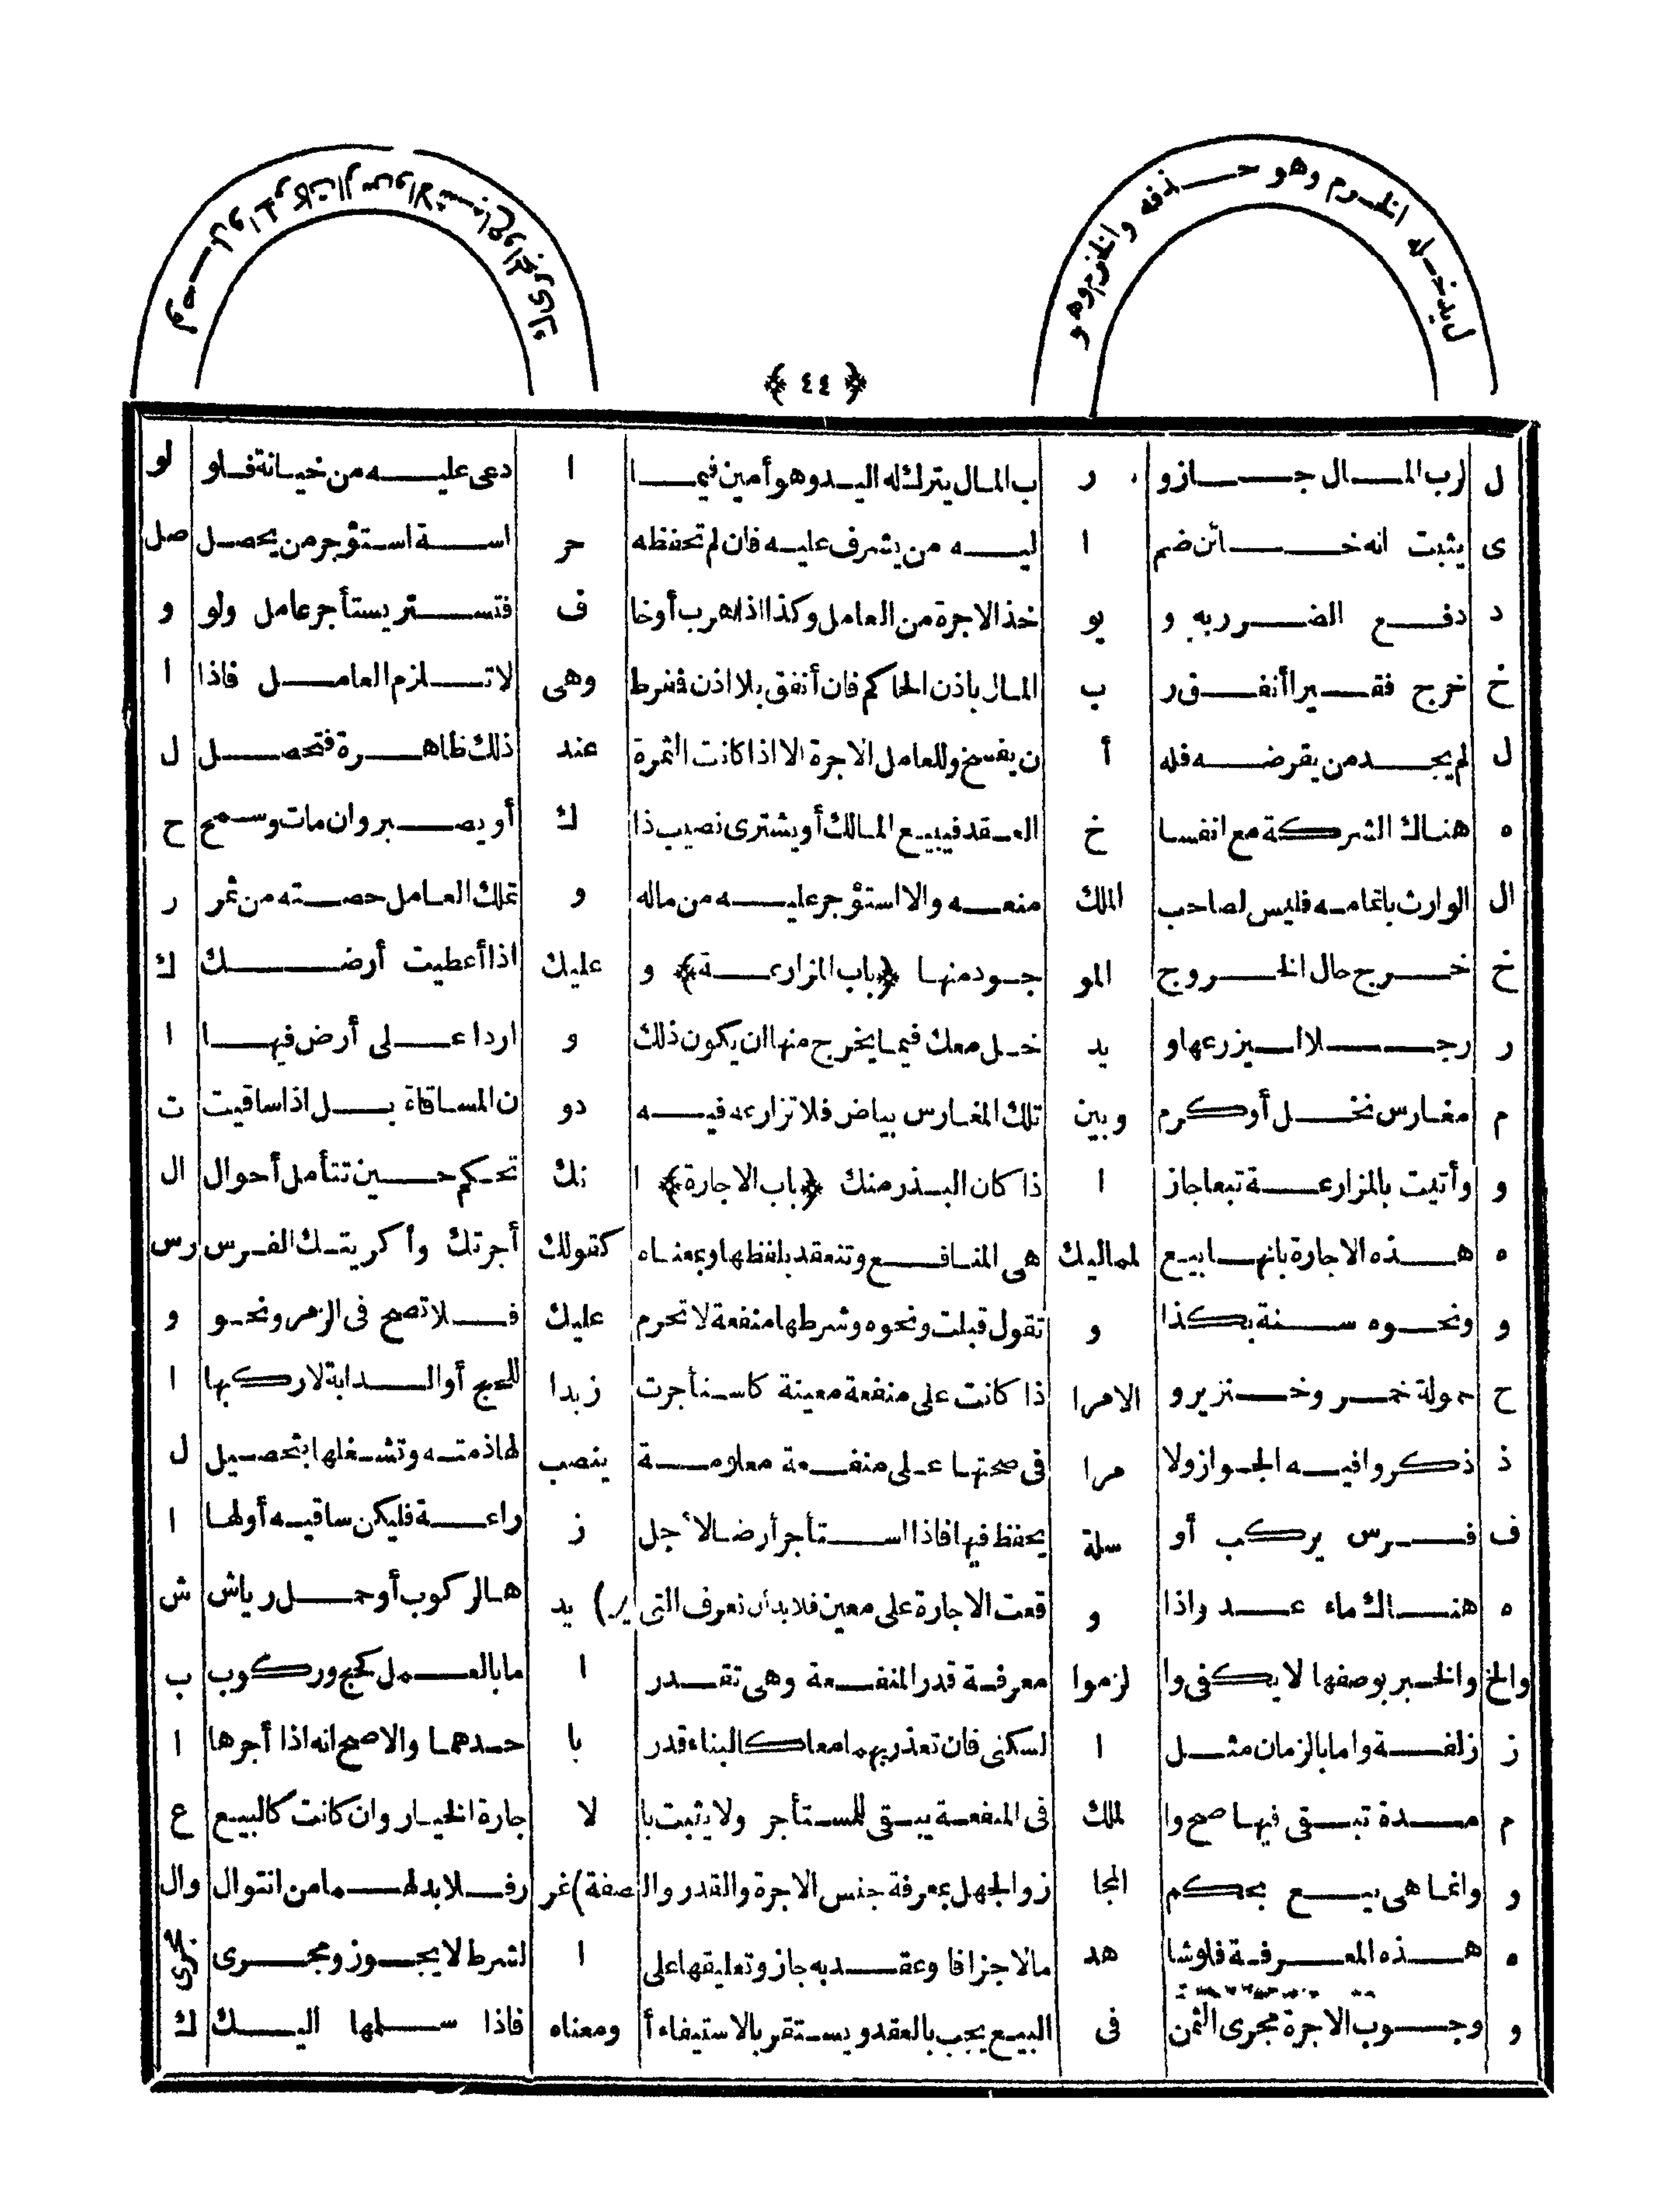 ل يدخله الخرم وهو حذفه والخزم وهو
وصل والدركات الرس والاشباع والمجرى كاء
﴿ ٤٤ ﴾
ل لرب المال جاز و ر ب المال يترك له اليد وهو أمين فيما ا دعى عليه من خيانة فلو لو
ى يثبت انه خائن ضم ا ليه من يشرف عليه فان لم تحفظه حر اسة استؤجر من يحصل صل
د دفع الضرر به و يو خذ الاجرة من العامل وكذا اذا هرب أوخا ف فتستر يستأجر عامل ولو و
خ خرج فقيرا أنفق ر ب المال باذن الحاكم فان أنفق بلا اذن فشرط وهى لا تلزم العامل فاذا ا
ل لم يجد من يقرضه فله أ ن يفسخ وللعامل الاجرة الا اذا كانت الثمرة عند ذلك ظاهرة فتحصل ل
ه هناك الشركة مع انفسا خ العقد فيبيع المالك أو يشترى نصيب ذا ك أو يصبر وان مات وسمح ح
ال الوارث باتمامه فليس لصاحب الملك منعه والا استؤجر عليه من ماله و تملك العامل حصته من ثمر ر
خ خرج حال الخروج المو جود منها ﴿باب المزارعة﴾ و عليك اذا أعطيت أرضك ك
ر رجلا ليزرعها و يد خل معك فيما يخرج منها ان يكون ذلك و اردا على أرض فيها ا
م مغارس نخل أو كرم وبين تلك المغارس بياض فلا تزارعه فيه دو ن المساقاة بل اذا ساقيت ت
و وأتيت بالمزارعة تبعا جاز ا ذا كان البذر منك ﴿باب الاجارة﴾ ا نك تحكم حين تتأمل أحوال ال
ه هذه الاجارة بانها بيع لماليك هى المنافع وتنعقد بلفظها وبمعناه كقولك أجرتك وأكريتك الفرس رس
و ونحوه سنة بكذا و تقول قبلت ونحوه وشرطها منفعة لا تحرم عليك فلا تصح فى الزمر ونحو و
ح حمولة خمر وخنزير و الامرا ذا كانت على منفعة معينة كاستأجرت زيدا للحج أو الدابة لاركبها ا
ذ ذكروا فيه الجواز ولا مرا فى صحتها على منفعة معلومة ينصب لها ذمته وتشغلها بتحصيل ل
ف فرس يركب أو سلة يحفظ فيها فاذا استأجر أرضا لاجل ز راعة فليكن ساقيه أولها ا
ه هناك ماء عد واذا و قعت الاجارة على معين فلا بد أن نعرف التى ير) يد هالركوب أو حمل رياش ش
والخ والخبر بوصفها لا يكفى وا لزموا معرفة قدر المنفعة وهى تقدر ا ما بالعمل كحج وركوب ب
ز زلفة واما بالزمان مثل ا لسكنى فان تعذر بهما معا كالبناء قدر با حدهما والاصح انه اذا أجرها ا
م مدة تبقى فيها صح وا لملك فى المنفعة يبقى للمستأجر ولا يثبت با لا جارة الخيار وان كانت كالبيع ع
و وانما هى بيع بحكم المجا ز والجهل بمعرفة جنس الاجرة والقدر والصفة) غر رفلا بد لهما من انتوال وال
ه هذه المعرفة فلو شا هد مالا جزافا وعقد به جاز وتعليقها على ا لشرط لا يجوز ومجرى مجرى
و وجوب الاجرة مجرى الثمن فى البيع يجب بالعقد ويستقر بالاستيفاء أ ومعناه فاذا سلمها اليك ك